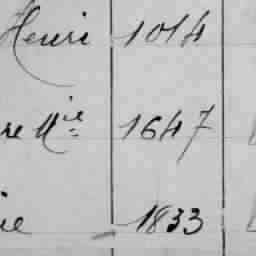 Henri 1014
re Mie 1647
ie 1833